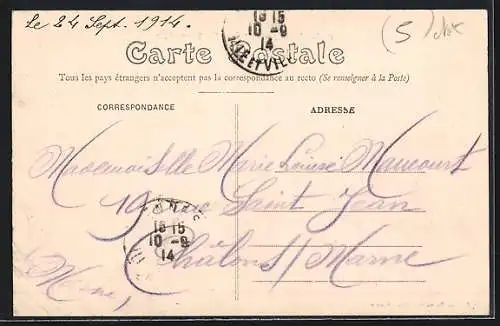 Le 24 Sept. 1914.
(5)
16 15
10 -9
14
ILLE ET VIL
Carte Postale
Tous les pays étrangers n'acceptent pas la correspondance au recto (Se renseigner à la Poste)
CORRESPONDANCE
ADRESSE
Mademoiselle Marie Louise Maucourt
19 rue Saint Jean
16 15
10 -9
14
Châlons s/ Marne
Marne,